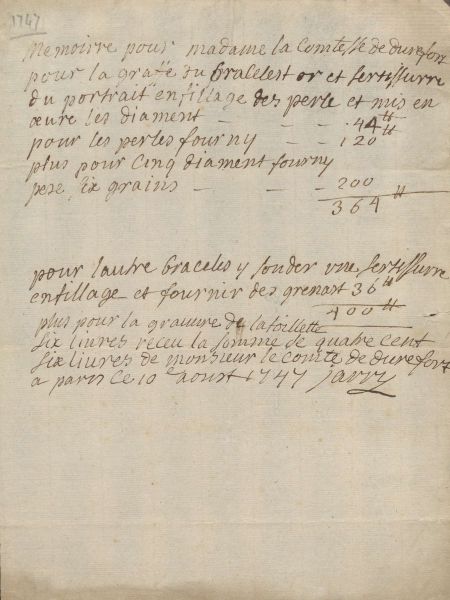 1747
Memoirre pour madame la Comtesse de durefort
pour la grate du bracelest or et sertissurre
du portrait enfillage des perle et mis en
œure les diament — — — 44 ₶
pour les perles fourny — — 120 ₶
plus pour Cinq diament fourny
peze six grains — — — 200
364 ₶
pour lautre braceles y souder une sertissurre
enfillage et fournir des grenast 36 ₶
400 ₶
plus pour la grauure de la
six liures receu la somme de quatre cent
six liures de monsieur le comte de durefort
a paris ce 10 aoust 1747 Jarry